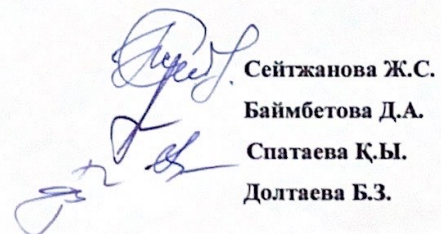 Сейтжанова Ж.С.
Баймбетова Д.А.
Спатаева Қ.Ы.
Долтаева Б.З.